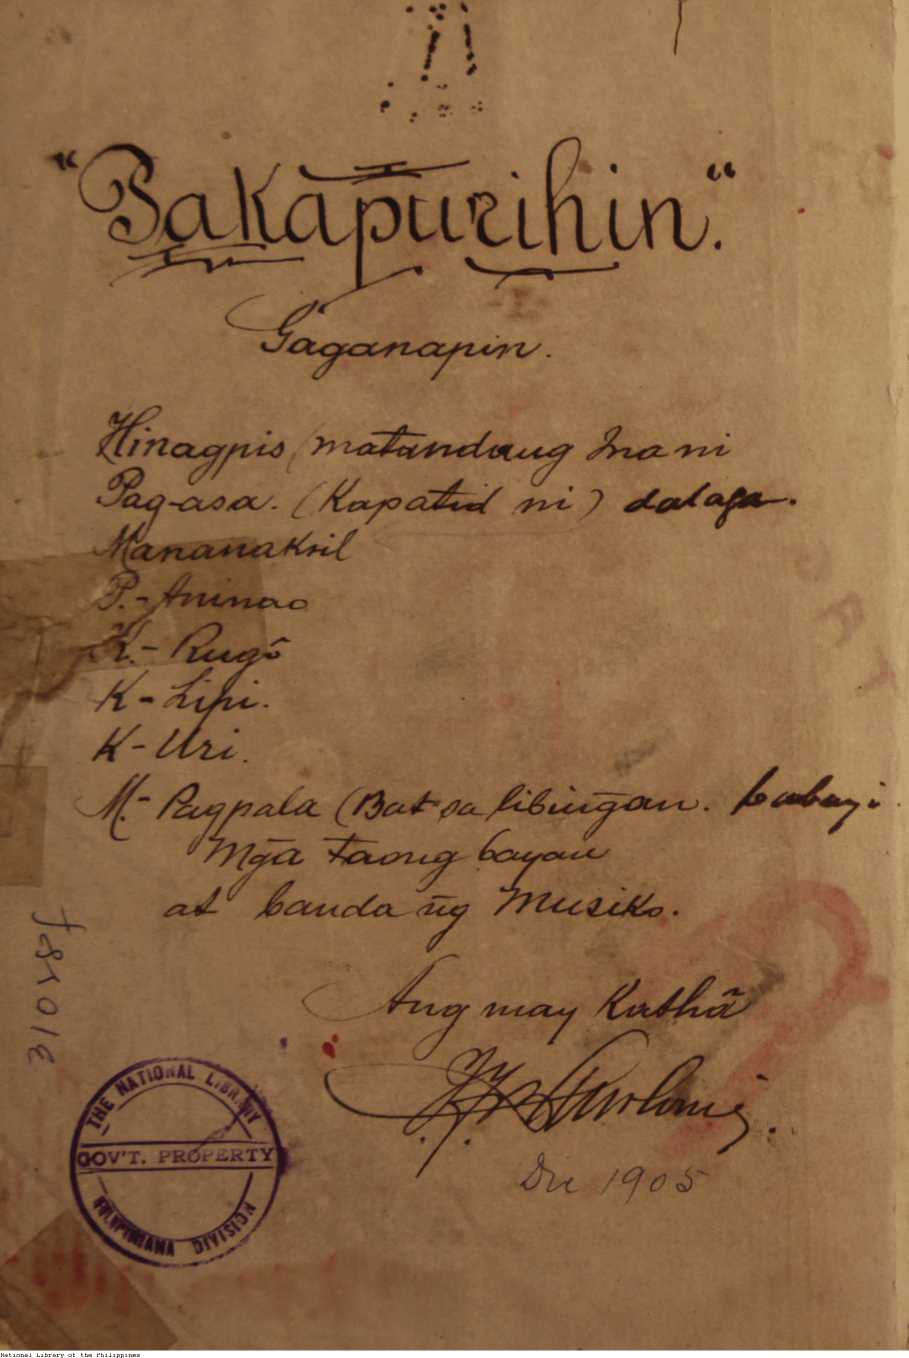 "Pakapurihin."
Gaganapin.
Hinagpis (matandang Ina ni
Pag-asa. (Kapatid ni) dalaga.
Mananakxil
P.- Aninao
K.- Rugõ
K - Lipi.
K - Uri.
M.- Pagpala (Bat sa libing̃an. babayi.
Mg̃a taong bayan
at banda ng̃ Musiko.
Ang may Kathã
1905
31018f
THE NATIONAL LIBRARY
GOV'T. PROPERTY
FILIPINIANA DIVISION
National Library of the Philippines